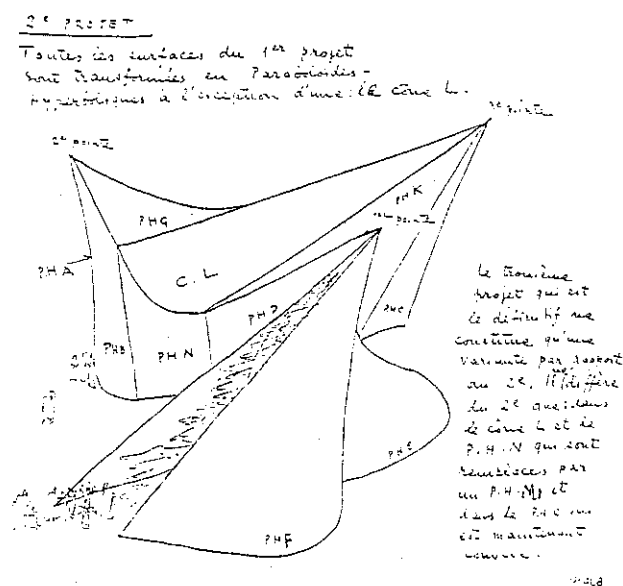 2e PROJET
Toutes les surfaces du 1er projet
sont transformées en Paraboloïdes-
Hyperboliques à l'exception d'une: le cône L.
3e pointe
2e pointe
PHK
1ère pointe
PHG
PHA
C.L
PHC
PHD
PHB
PHN
PHE
PHF
Le troisième
projet qui est
le définitif ne
constitue qu'une
variante par rapport
au 2e. Il diffère
du 2e que: dans
le cône L et le
P.H.N qui sont
remplacés par
un P.H. et
dans le PHC qui
est maintenant